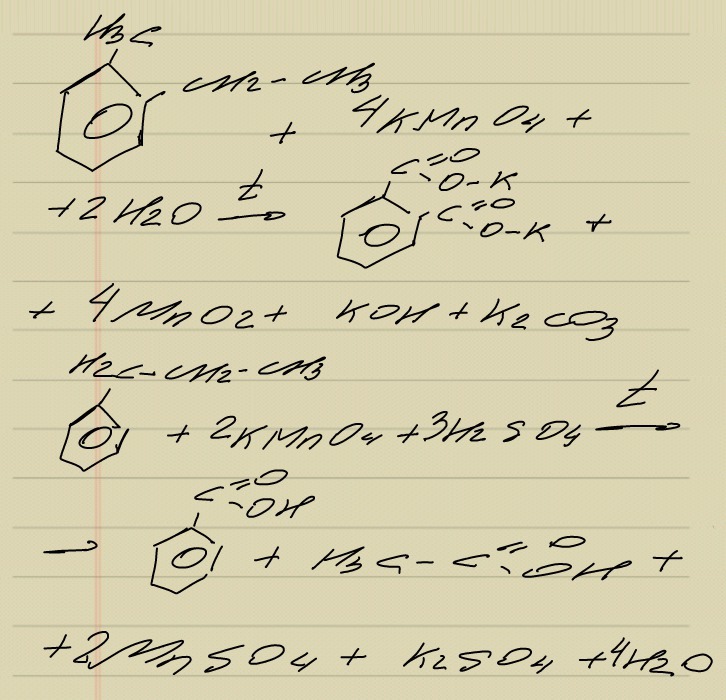 H3C
CH2 - CH3
+ 4KMnO4 +
C=O
O-K
+2 H2O t →
C=O
O-K +
+ 4MnO2 + KOH + K2CO3
H2C-CH2-CH3
+ 2KMnO4 + 3H2SO4 t →
C=O
OH
→ + H3C - C=O
OH +
+2MnSO4 + K2SO4 + 4H2O